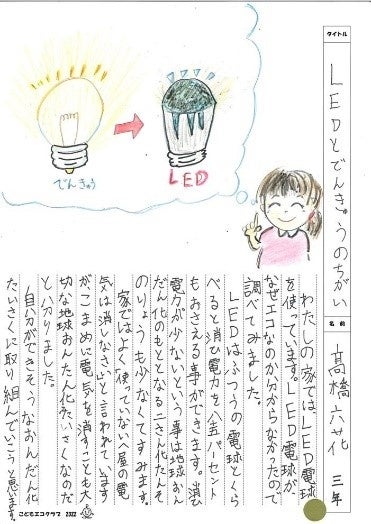 タイトル
LEDとでんきゅうのちがい
名前
髙橋六花 三年
でんきゅう
LED
わたしの家ではLED電球
を使っています。LED電球が、
なぜエコなのか分からなかったので
調べてみました。
LEDはふつうの電球とくら
べると消ひ電力を八五パーセント
もおさえる事ができます。消ひ
電力が少ないという事は地球おん
だん化のもととなる二さん化たんそ
のりょうも少なくてすみます。
家ではよく「使っていないへ屋の電
気は消しなさい」と言われています
がこまめに電気を消すことも大
切な地球おんだん化たいさくなのだ
と分かりました。
自分ができそうなおんだん化
たいさくに取り組んでいこうと思います。
こどもエコクラブ 2022